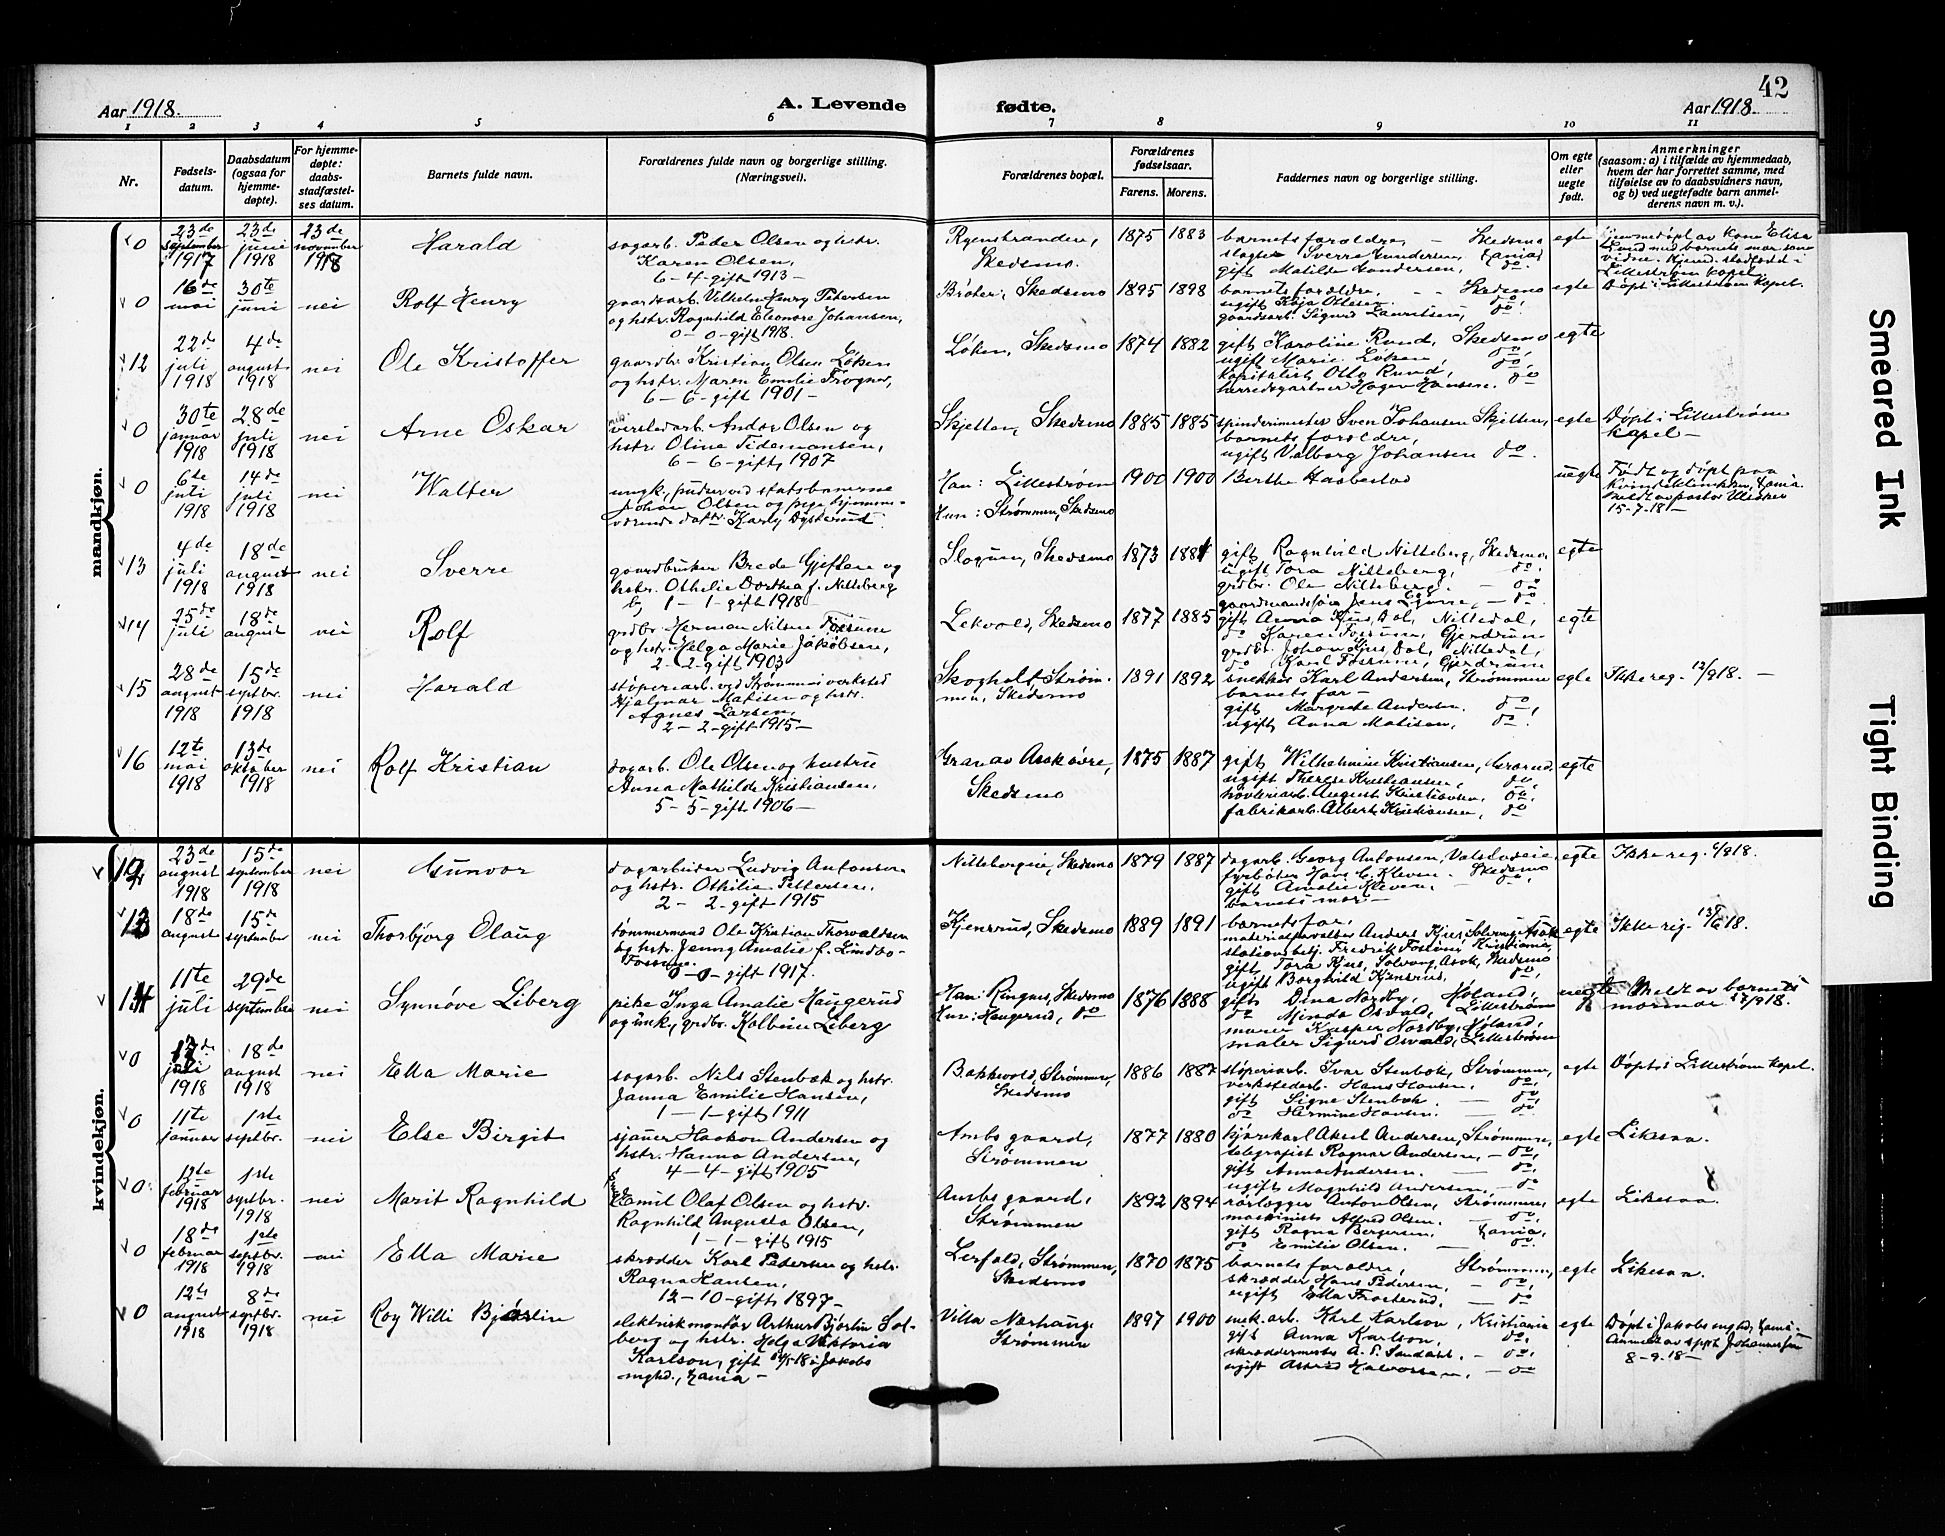 42
Aar 1918. A. Levende fødte. Aar 1918.
1 2 3 4 5 6 7 8 9 10 11
Nr.
Fødsels-
datum.
Daabsdatum
(ogsaa for
hjemme-
døpte).
For hjemme-
døpte:
daabs-
stadfæstel-
ses datum.
Barnets fulde navn.
Forældrenes fulde navn og borgerlige stilling.
(Næringsvei).
Forældrenes bopæl.
Forældrenes
fødselsaar.
Farens. Morens.
Faddernes navn og borgerlige stilling.
Om egte
eller
uegte
født.
Anmerkninger
(saasom: a) i tilfælde av hjemmedaab,
hvem der har forrettet samme, med
tilføielse av to daabsvidners navn,
og b) ved uegtefødte barn anmel-
derens navn m. v.).
mandkjøn.
0
23de september 1917
23de juni 1918
23de november 1918
Harald
sagarb. Peder Olsen og hstr.
Karen Olsen,
6-4-gift 1913-
Ryenstranden,
Skedsmo.
1875 1883
barnets foroldre, - Skedsmo
slagter Sverre Gundersen, Kania,
gift Matilde Gundersen, do.
egte
Hjemmedøpt av kone Elise
Lund med barnets mor som
vidne. Hjemd. stadfæst i
Lillestrøm kapel.
0
16de mai
30te juni
nei
Rolf Henry
gaardsarb. Vilhelm Henry Petersen
og hstr. Ragnhild Eleonore Johansen,
0-0-gift 1918.
Bråter, Skedsmo
1895 1898
barnets foroldre, - - Skedsmo
ugift Kaja Ottesen. do.
gaardsarb. Sigurd Lauritsen, do.
egte
Døpt i Lillestrøm kapel.
12
22de juli 1918
4de august 1918
nei
Ole Kristoffer
gaardbr. Kristian Olsen Løken
og hstr. Maren Emilie Trogner,
6-6-gift 1901-
Løken, Skedsmo
1874 1882
gift Karoline Rund, Skedsmo
ugift Marie Løken, do,
kapitalist Otto Rund, do,
herredsgartner Hagen Hansen. do
egte
0
30te januar 1918
28de juli 1918
nei
Arne Oskar
verkstedarb. Andor Olsen og
hstr. Oline Tidemansen,
6-6-gift 1907
Skjetten, Skedsmo
1885 1885
spinderimester Sven Johansen Skjetten,
barnets foroldre,
ugift Valborg Johansen do.
egte
Døpt i Lillestrøm
kapel-
0
6te juli 1918
14de juli 1918
nei
Walter
ungk., pudser ved statsbanerne
Johan Olsen og pige hjemme-
værende datr. Karly Dysterud.
Han: Lillestrøm
Hun: Strømmen, Skedsmo
1900 1900
Berthe Haabestad
uegte
Født og døpt paa
kvindeklinikken, Kania.
Meldt av pastor
15-7-18-
13
4de juli 1918
18de august 1918
nei
Sverre
gaardbruker Brede Gjiflen og
hstr. Othelie Dorthea f. Nitteberg
1-1-gift 1918-
Slogum, Skedsmo
1873 1881
gift Ragnhild Nitteberg, Skedsmo.
ugift Tora Nitteberg, do.
grdbr. Ole Nitteberg. - do
gaardmandssøn Jens - do.
egte
14
25de juli
18de august
nei
Rolf
grdbr. Herman Nilsen Fossum
og hstr. Helga Marie Jakobsen,
2-2-gift 1903
Lekvold, Skedsmo
1877 1885
gift Anna Kjus, Dal, Nittedal,
do Karen Fossum, Gjerdrum
grdbr. Johan Kjus, Dal, Nittedal,
do Karl Fossum, Gjerdrum
egte
15
28de august 1918
15de septbr. 1918
nei
Harald
støperiarb. ved Strømmen verksted
Hjalmar Matisen og hstr.
Agnes Larsen,
2-2-gift 1915-
Skogholt, Strøm-
men, Skedsmo
1891 1892
snekker Karl Andersen, Strømmen
barnets far-
gift Margrete Andersen. do,
ugift Anna Matisen, do.
egte
Ikke reg. 12/9 18. -
16
12te mai 1918
13de oktober 1918
nei
Rolf Kristian
dagarb. Ole Olsen og hustru
Anna Mathilde Kristiansen,
5-5-gift 1906-
Gran av Asakøvre,
Skedsmo
1875 1887
gift Wilhelmine Kristiansen, Grorud.
ugift Therese Kristiansen, do,
høvleriarb. August Kristiansen, do.
fabrikarb. Albert Kristiansen, do
egte
kvindekjøn.
12
23de august 1918
15de september 1918
nei
Gunvor
dagarbeider Ludvig Antonsen
og hstr. Othilie Pettersen.
2-2-gift 1915
Nittebergeie, Skedsmo
1879 1887
dagarb. Georg Antonsen, Valstadeie,
fyrbøter Hans C. Kleven. Skedsmo
gift Amalie Kleven. - do.
barnets mor-
egte
Ikke reg. 9/9 18.
13
18de august
15de september
nei
Thorbjørg Olaug
tømmermand Ole Kristian Thorvaldsen
og hstr. Jenny Amalie f. Lindbo-
Fossum.
0-0-gift 1917.
Kjensrud, Skedsmo
1889 1891
barnets far,
materialforvalter Anders Kjus, Solvang, Asak
stationsbetj. Fredrik Fossum, Kristiania,
gift Tora Kjus, Solvang, Asak, Skedsmo
ugift Borghild Kjensrud, do,
egte
Ikke reg.
14
11te juli
29de september
nei
Synnøve Liberg
pike Inga Amalie Haugerud
og unk., grdbr. Kolbein Liberg
Han: Ringnes, Skedsmo
Hun: Haugerud, do
1876 1888
gift Dina Nordby, Høland,
do Minda Osvald, Lillestrøm
murer Kasper Nordby, Høland,
maler Sigurd Osvald, Lillestrøm
uegte
Meldt av barnets
mormor 17/9 18.
0
17de juli 1918
18de august 1918
nei
Ella Marie
sagarb. Nils Stenbæk og hstr.
Janna Emilie Hansen,
1-1-gift 1911
Bakkevold, Strømmen,
Skedsmo
1886 1887
støperiarb. Ivar Stenbæk, Strømmen,
verkstedarb. Hans Hansen, do,
gift Signe Stenbæk. - do,
do Hermine Hansen. - do
egte
Døpt i Lillestrøm kapel.
0
11te januar
1ste septbr.
nei
Else Birgit
sjauer Haakon Andersen og
hstr. Hanna Andersen,
4-4-gift 1905
Ambs gaard,
Strømmen
1877 1880
kjørekarl Aksel Andersen, Strømmen,
telegrafist Ragnar Andersen, - do.
gift Anna Andersen. - do.
ugift Magnhild Andersen. - do
egte
Likesaa.
0
12te februar 1918
1ste septbr. 1918
nei
Marit Ragnhild
Emil Olaf Olsen og hstr.
Ragnhild Augusta Olsen,
1-1-gift 1915
Ambs gaard,
Strømmen
1892 1894
rørlegger Anton Olsen, Strømmen,
maskinist Alfred Olsen. - do.
gift Ragna Bergersen, Kania,
do Emilie Olsen. - do.
egte
Likesaa.
0
18de februar 1918
1ste septbr. 1918
nei
Ella Marie
skrædder Karl Pedersen og hstr.
Ragna Hansen,
12-10-gift 1897-
Lerfald, Strømmen,
Skedsmo
1870 1875
barnets foroldre, Strømmen,
skrædder Hans Pedersen, - do,
ugift Ella Frosterud, - do
egte
Likesaa.
0
12te august 1918
8de septbr. 1918
nei
Roy Willi Bjørlin
elektriskmontør Arthur Bjørlin Sol-
berg og hstr. Helga Viktoria
Karlson, gift 18 i Jakobs
mghd., Kania-
Villa Norhaug
Strømmen
1897 1900
mek. arb. Karl Karlson, Kristiania
gift Anna Karlson, do,
skræddermester A. P. Sandahl. - do,
ugift Astrid Halvorsen, - do
egte
Døpt i Jakobs mghd, Kania-
Anmeldt av sogpr. Johannessen
8-9-18-
Smeared Ink
Tight Binding